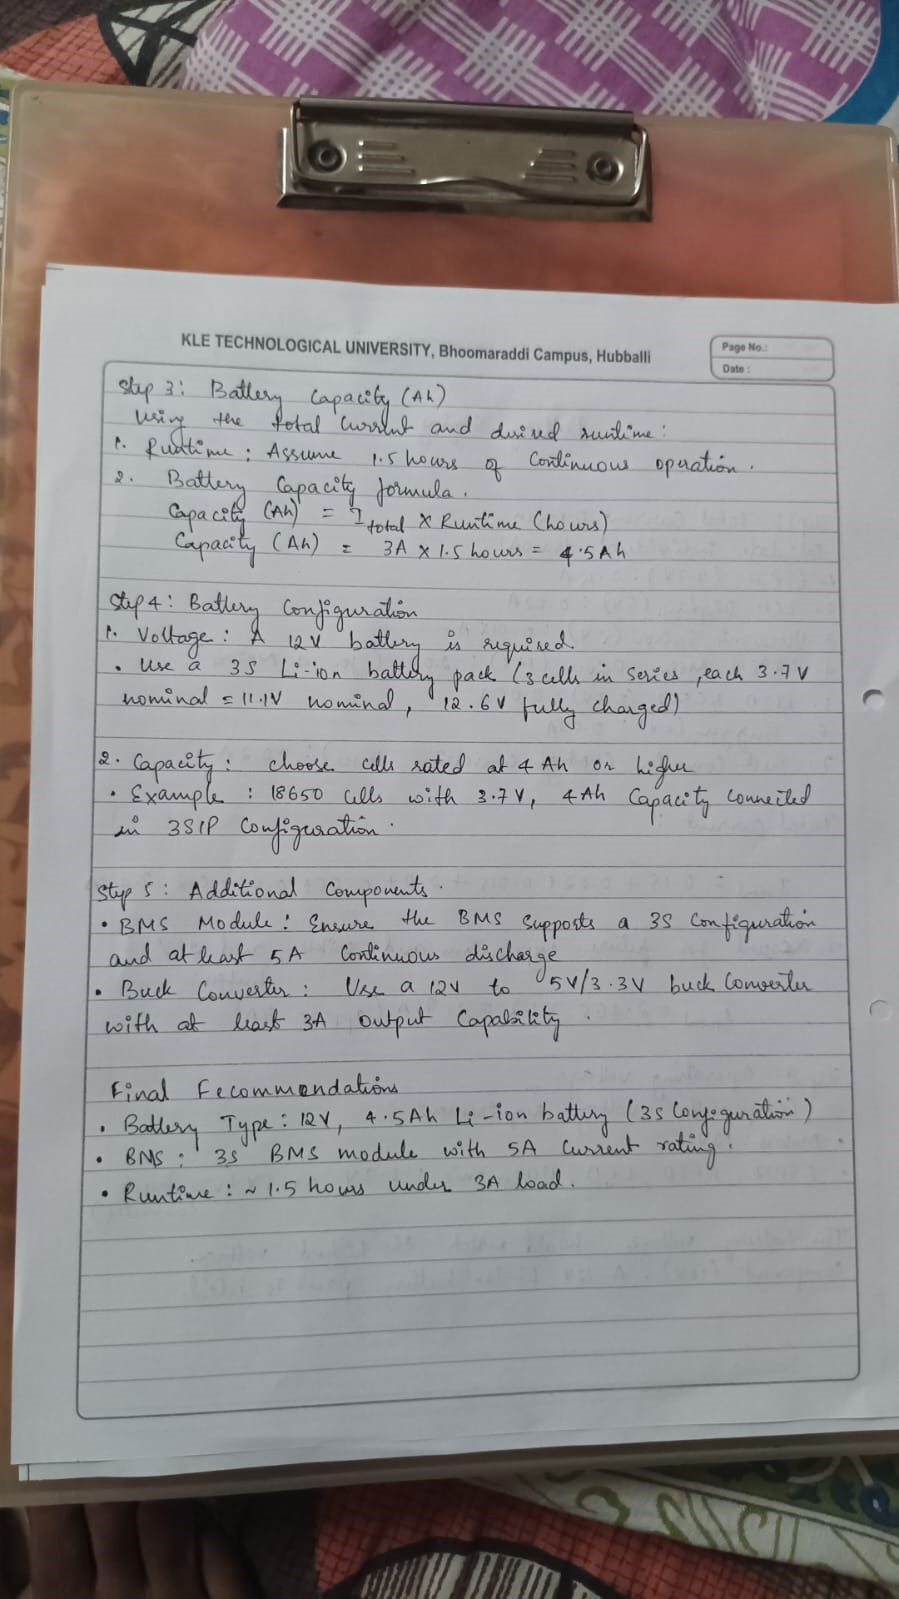 KLE TECHNOLOGICAL UNIVERSITY, Bhoomaraddi Campus, Hubballi
Page No.:
Date :
Step 3: Battery Capacity (Ah)
Using the total current and desired runtime:
1. Runtime : Assume 1.5 hours of Continuous operation.
2. Battery Capacity formula.
Capacity (Ah) = I total × Runtime (hours)
Capacity (Ah) = 3A × 1.5 hours = 4.5 Ah
Step 4: Battery Configuration
1. Voltage : A 12V battery is required.
• Use a 3S Li-ion battery pack (3 cells in series, each 3.7V
nominal = 11.1V nominal, 12.6V fully charged)
2. Capacity : choose cells rated at 4 Ah or higher
• Example : 18650 cells with 3.7V, 4Ah Capacity connected
in 3S1P Configuration.
Step 5 : Additional Components.
• BMS Module : Ensure the BMS supports a 3S configuration
and at least 5A Continuous discharge
• Buck Converter : Use a 12V to 5V/3.3V buck converter
with at least 3A output Capability.
Final Fecommendations
• Battery Type : 12V, 4.5Ah Li-ion battery (3S Configuration)
• BMS : 3S BMS module with 5A current rating.
• Runtime : ~ 1.5 hours under 3A load.